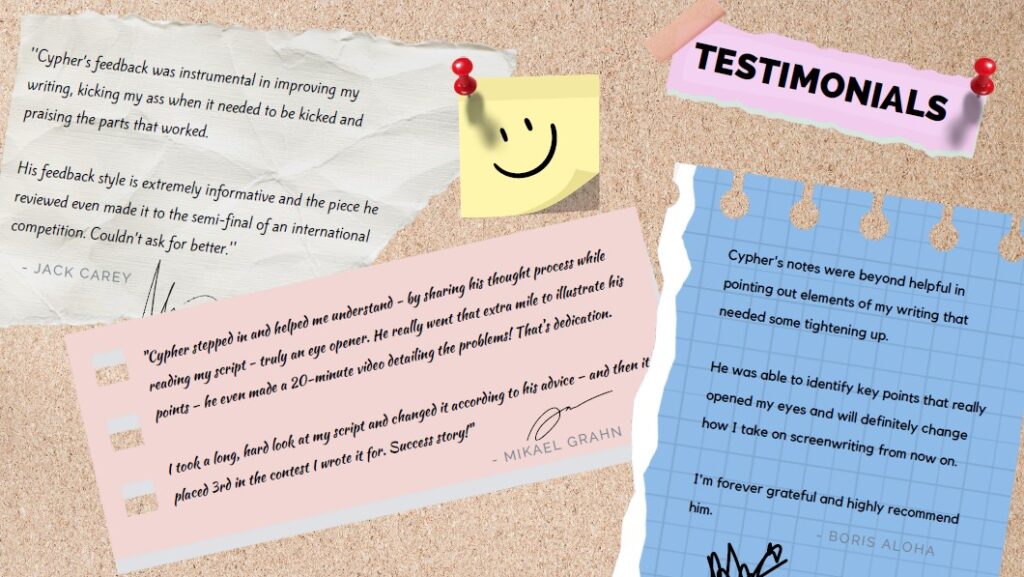 TESTIMONIALS
"Cypher's feedback was instrumental in improving my
writing, kicking my ass when it needed to be kicked and
praising the parts that worked.
His feedback style is extremely informative and the piece he
reviewed even made it to the semi-final of an international
competition. Couldn't ask for better."
- JACK CAREY
"Cypher stepped in and helped me understand - by sharing his thought process while
reading my script - truly an eye opener. He really went that extra mile to illustrate his
points - he even made a 20-minute video detailing the problems! That's dedication.
I took a long, hard look at my script and changed it according to his advice - and then it
placed 3rd in the contest I wrote it for. Success story!"
- MIKAEL GRAHN
Cypher's notes were beyond helpful in
pointing out elements of my writing that
needed some tightening up.
He was able to identify key points that really
opened my eyes and will definitely change
how I take on screenwriting from now on.
I'm forever grateful and highly recommend
him.
- BORIS ALOHA